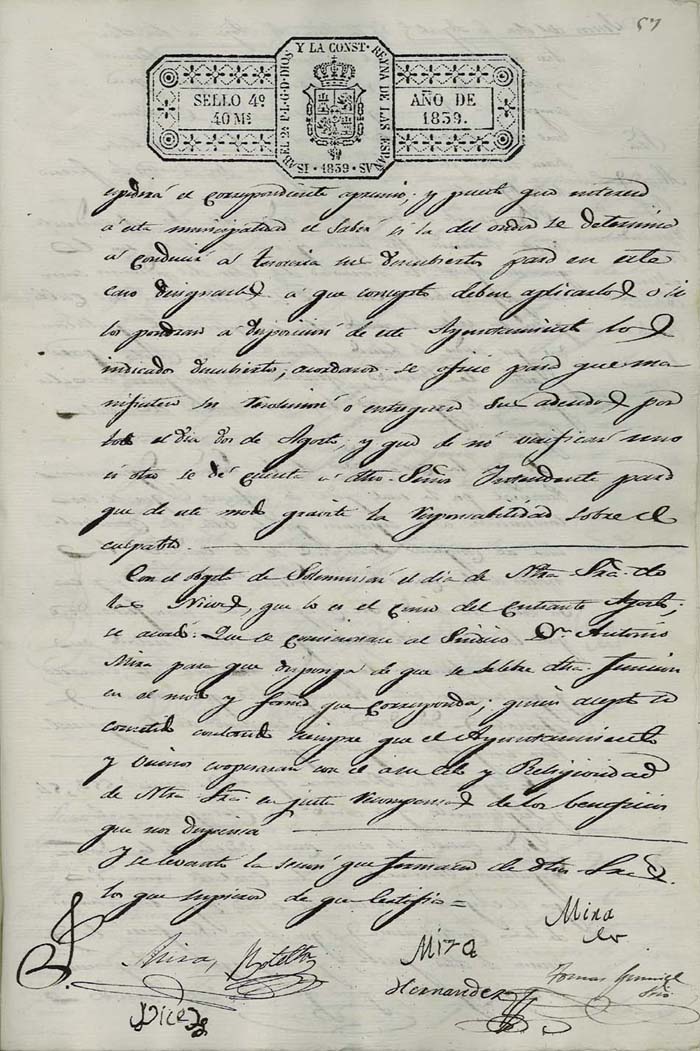 57
ISABEL 2ª P.L.G.D DIOS Y LA CONST. REYNA DE LAS ESPAÑAS
SELLO 4º
40 Ms
AÑO DE
1839.
1839
el correspondiente apremio, y puesto que interesa
á esta municipalidad el saber si la del orden se determina
á conducir á tesoreria sus descubiertos para en este
caso designarles á que concepto deben aplicarlos o si
los pondran á disposicion de este Ayuntamiento los
indicados descubiertos; acordaron se oficie para que ma-
nifiesten su resolucion ó entreguen sus adeudos por
todo el dia dos de Agosto, y que de no verificar uno
ú otro se dé cuenta á dho. Señor Intendente para
que de este modo gravite la responsabilidad sobre el
culpable.
Con el objeto de solemnisar el dia de Ntra Sra. de
las Nieves, que lo es el cinco del entrante Agosto;
se acordó: Que se comisionase al Sindico Dn. Antonio
Mira para que disponga de que se selebre dha. funcion
en el modo y forma que corresponda; quien acepto el
cometido contando siempre que el Ayuntamiento
y vecinos cooperaran con el á su celo y Religiosidad
de Ntra Sra. en justa recompensa de los beneficios
que nos dispensa
Y se levantó la sesion que firmaron de dhos Sres.
los que supieron de que certifico =
Mira
Mira
Botella
Mira
Hernandez
Tomas
Srio